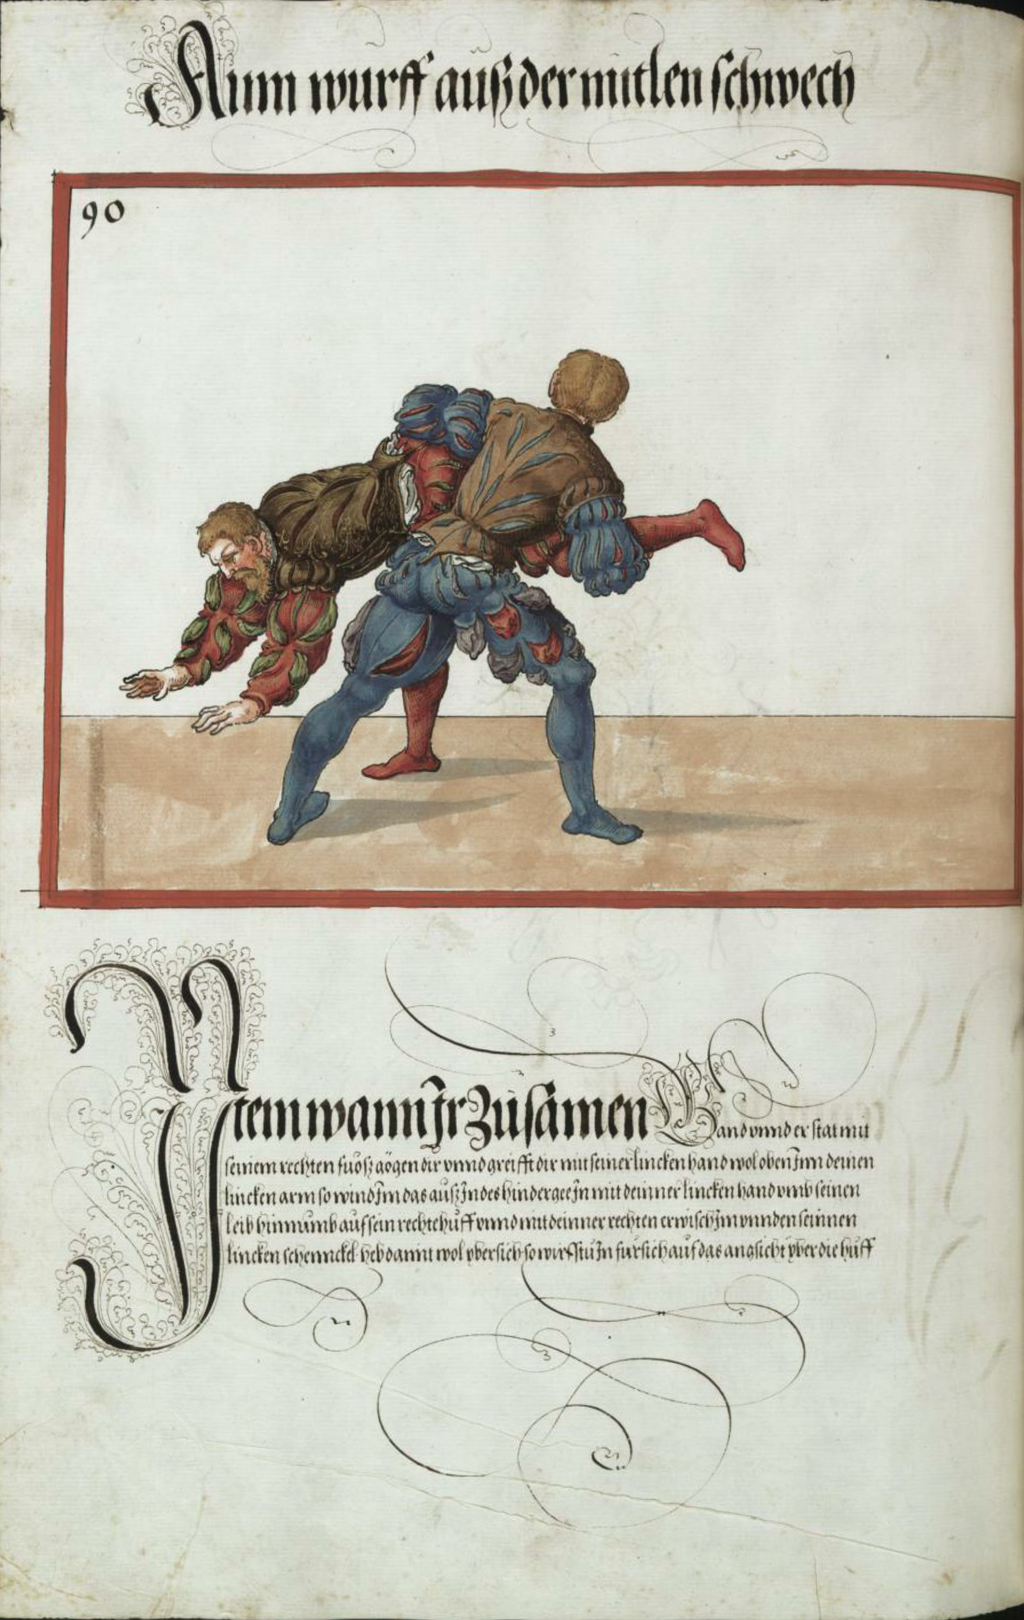 Ainn wurff auß der mitlen schwech
90
Item wann Ir Zusamen Gand vnnd er stat mit
seinem rechten fuosz gögen dir vnnd greifft dir mit seiner lincken hand wol oben Inn deinen
lincken arm so wind Im das auß In des hindergee In mit deinner lincken hand vmb seinen
leib hinnumb auf sein rechte huff vnnd mit deinner rechten erwisch Im vnnden seinnen
lincken schennckel heb damit wol vbersich so wirfstu In fursich auf das angsicht vber die huff